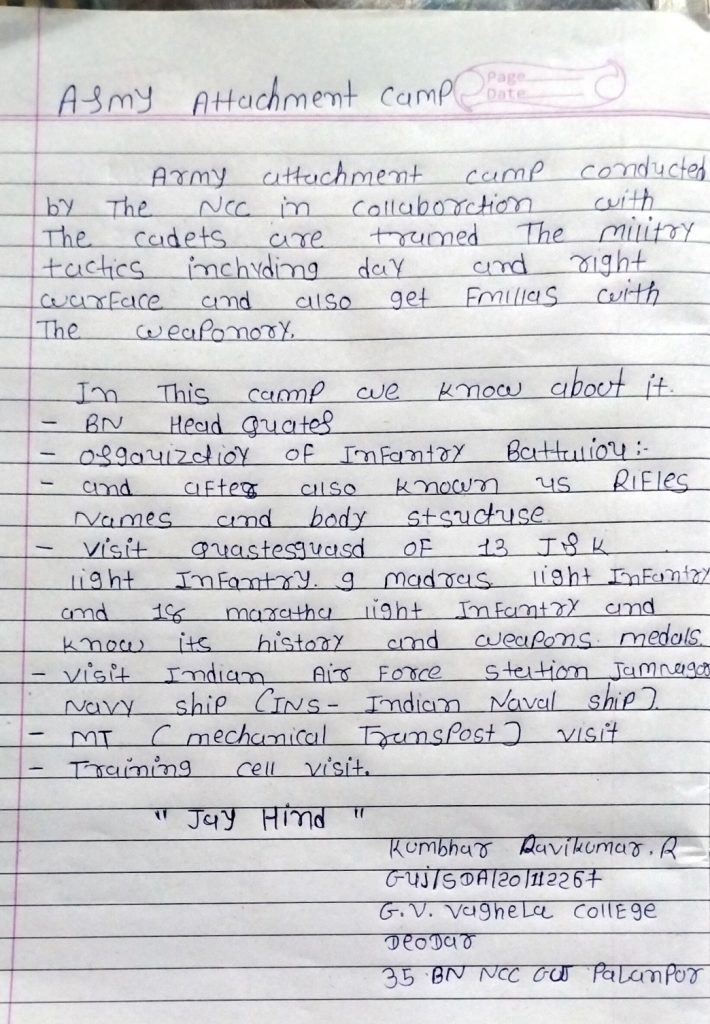 Army Attachment Camp
Page
Date
Army attachment camp conducted
by The NCC in collaborction with
The cadets are trained The militry
tactics inchvding day and right
warface and also get Emillas with
The weaponory.
In This camp we know about it.
- BN Head quates
- organizatioy of Infantry Battaliou :-
- and after also known as Rifles
Names and body structure
- visit quartesguasd of 13 J&K
light Infantry. 9 madras light Infantry
and 18 maratha light Infantry and
know its history and weapons. medals.
- visit Indian Air Force station Jamnagar
Navy ship (INS - Indian Naval ship).
- MT (mechanical Transpost) visit
- Training cell visit.
" Jay Hind "
Kumbhar Ravikumar. R
Guj/SDA/20/112267
G. V. Vaghela College
Deodar
35 BN NCC Palanpur